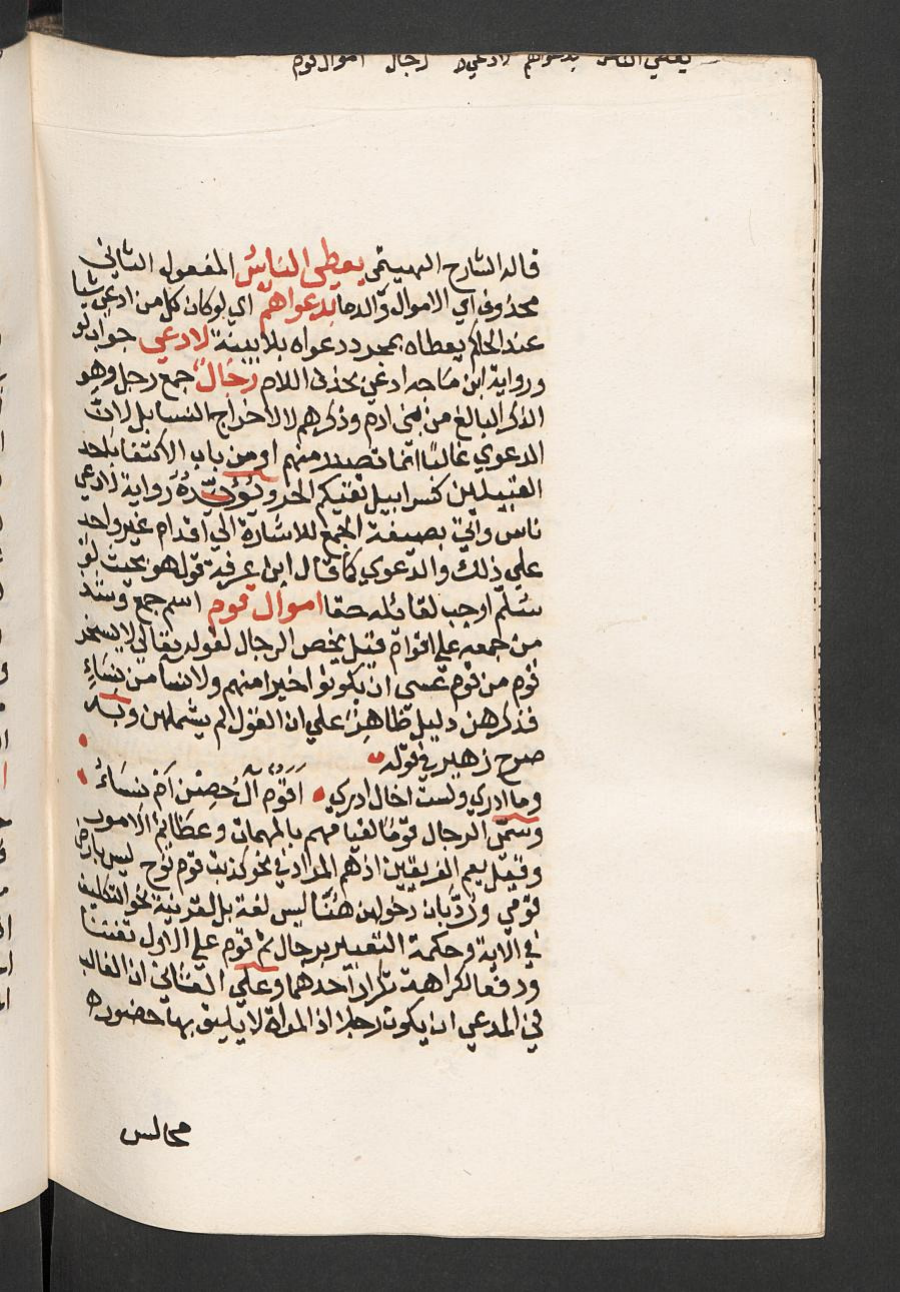 يعطي الناس بدعواهم لادعي رجال اموال قوم
قاله الشارح الهيتمي يعطى الناسُ المفعول الثاني
محذوف اي الاموال والدما بدعواهم اي لو كان كل من ادعي شيا
عند الحاكم يعطاه بمجرد دعواه بلا بينة لادعي جواب لو
ورواية ابن ماجه ادعي بحذف اللام رجال جمع رجل وهو
الذكر البالغ من بني ادم وذكرهم لا لاخراج النسا بل لان
الدعوي غالبا انما تصدر منهم او من باب الاكتفا باحد
القبيلين كسرابيل تقيكم الحر ويؤيده رواية لادعي
ناس واتي بصيغة الجمع للاشارة الي اقدام غير واحد
علي ذلك والدعوي كما قال ابن عرفة قول هو بحيث لو
سلم اوجب لقائله حقا اموال قوم اسم جمع وشذ
من جمعه علي اقوام قيل يخص الرجال لقوله تعالي لا يسخر
قوم من قوم عسي ان يكونوا خيرا منهم ولا نسا من نساءٍ
فذكرهن دليل ظاهر علي ان القول لم يشملهن وبه
صرح زهير في قوله
وما ادري ولست اخال ادري اَقَوْم آل حِصْن اَمْ نِسَاءُ
وسمي الرجال قوما لقيامهم بالمهمات وعظائم الامور
وقيل يعم الفريقين اذهم المراد في نحو كذبت قوم نوح ليس بارض
قومي ورُدَّ بان دخولهن هنا ليس لغة بل لقرينة نحو التكليف
في الاية وحكمة التعبير برجال ثم قوم علي الاول تفننا
ودفعا لكراهة تكرار احدهما وعلي الثاني ان الغالب
في المدعي ان يكون رجلا اذ المراة لا يليق بها حضور
مجالس